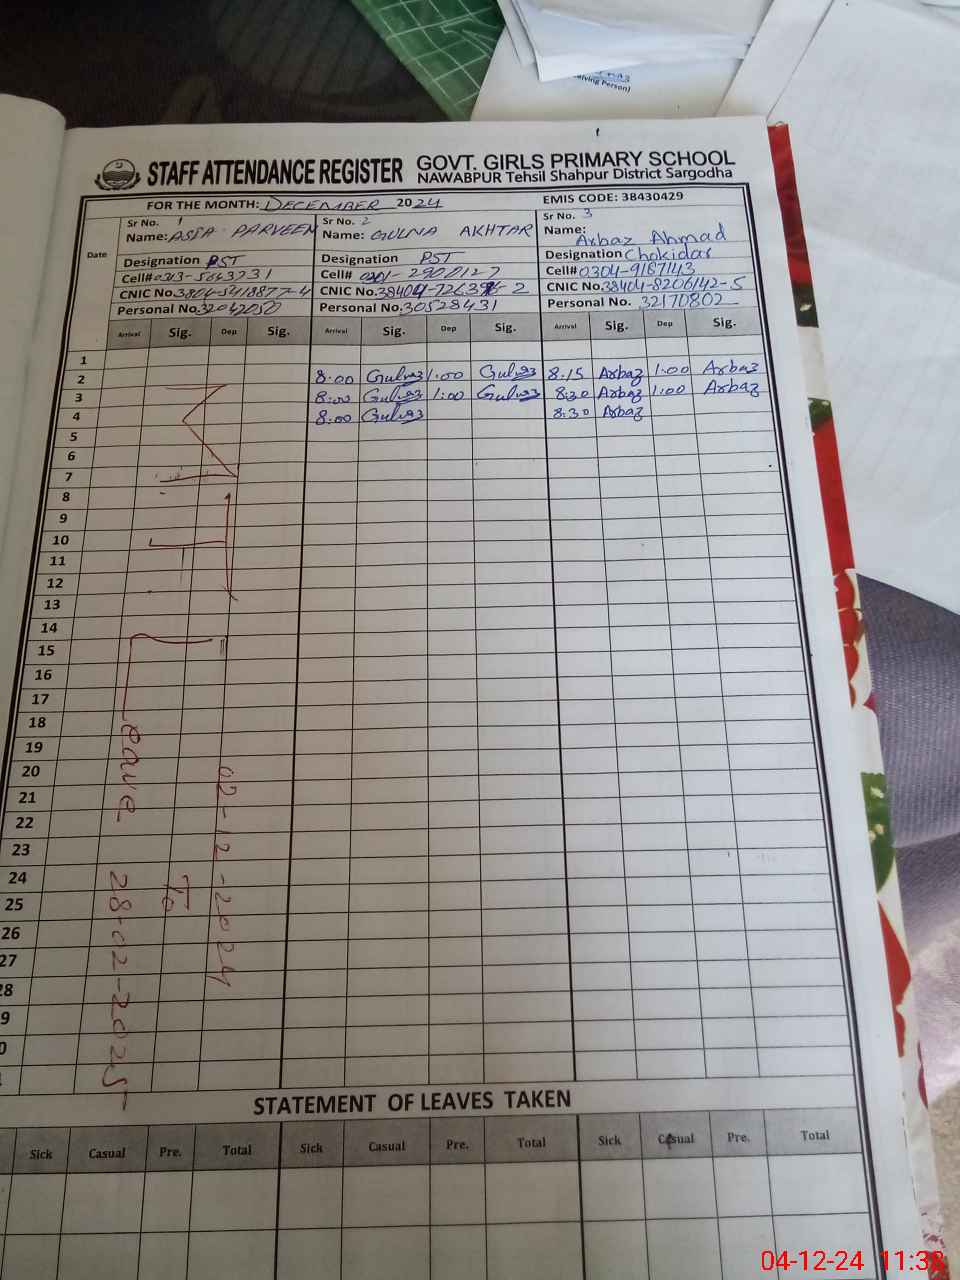 STAFF ATTENDANCE REGISTER GOVT. GIRLS PRIMARY SCHOOL
NAWABPUR Tehsil Shahpur District Sargodha
FOR THE MONTH: DECEMBER 2024 EMIS CODE: 38430429
Date
Sr No. 1
Name: ASIA PARVEEN
Designation PST
Cell# 0313-5643731
CNIC No.
Personal No. 32042050
Sr No. 2
Name: GULNA AKHTAR
Designation PST
Cell# 0301-2900127
CNIC No.
Personal No. 30528431
Sr No. 3
Name: Arbaz Ahmad
Designation Chokidar
Cell# 0304-9167143
CNIC No. 38404-8206142-5
Personal No. 32170802
Arrival Sig. Dep Sig. Arrival Sig. Dep Sig. Arrival Sig. Dep Sig.
1
2 8:00 1:00 8:15 Arbaz 1:00 Arbaz
3 8:00 1:00 8:30 Arbaz 1:00 Arbaz
4 8:00 8:30 Arbaz
5
6
7
8
9
10
11
12
13
14
15
16
17
18
19
20
21
22
23
24
25
26
27
28
9
0
Leave
02-12-2024
To
28-02-2025
STATEMENT OF LEAVES TAKEN
Sick Casual Pre. Total Sick Casual Pre. Total Sick Casual Pre. Total
04-12-24 11:38